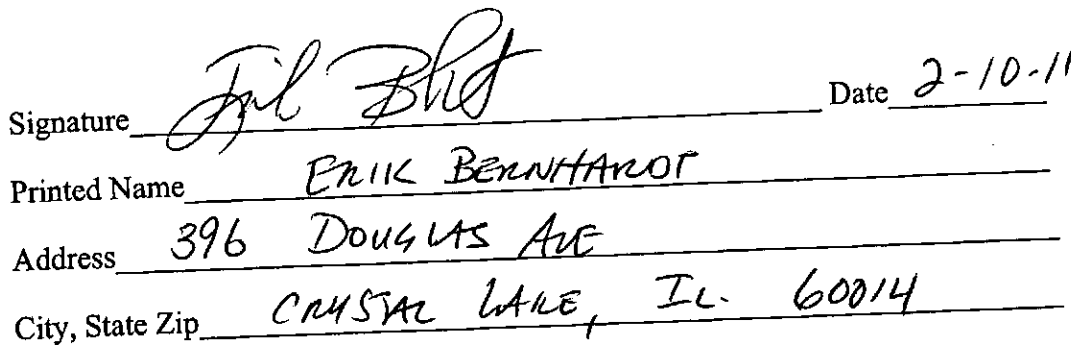 Signature Date 2-10-11
Printed Name ERIK BERNHARDT
Address 396 DOUGLAS AVE
City, State Zip CRYSTAL LAKE, IL. 60014